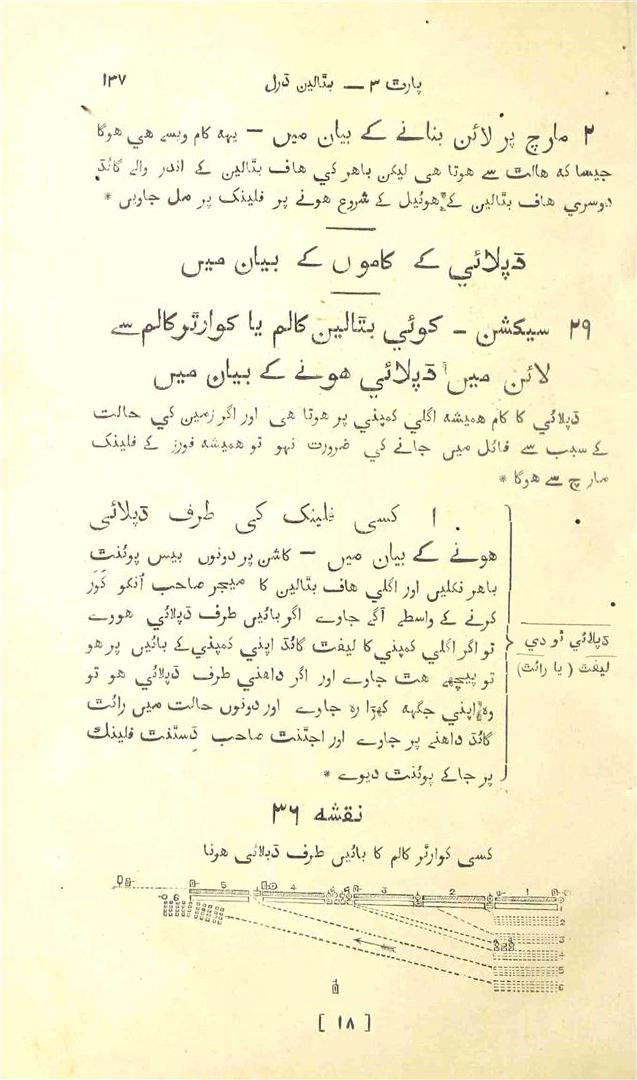 پارٹ ۳ — بٹالین ڈرل ۱۳۷
۲ مارچ پر لائن بنانے کے بیان میں — یہہ کام ویسے هي هوگا
جیسا کہ هالٹ سے هوتا هی لیکن باهر کي هاف بٹالین کے اندر والے گائڈ
دوسري هاف بٹالین کے هوئیل کے شروع هونے پر فلینک پر مل جاویں *
ڈپلائي کے کاموں کے بیان میں
۲۹ سیکشن - کوئي بٹالین کالم یا کوارٹر کالم سے
لائن میں ڈپلائي هونے کے بیان میں
ڈپلائي کا کام همیشہ اگلي کمپني پر هوتا هی اور اگر زمین کي حالت
کے سبب سے فائل میں جانے کي ضرورت نہو تو همیشہ فورز کے فلینک
مارچ سے هوگا *
۱ کسي فلینک کي طرف ڈپلائي
هونے کے بیان میں — کاشن پر دونوں بیس پوئنٹ
باهر نکلیں اور اگلي هاف بٹالین کا میجر صاحب اُنکو کَوَر
کرنے کے واسطے آگے جاوے اگر بائیں طرف ڈپلائي هووے
تو اگر اگلي کمپني کا لیفٹ گائڈ اپني کمپني کے بائیں پر هو
تو پیچھے هٹ جاوے اور اگر داهني طرف ڈپلائي هو تو
وہ اپني جگہہ کھڑا رہ جاوے اور دونوں حالت میں رائٹ
گائڈ داهنے پر جاوے اور اجٹنٹ صاحب ڈسٹنٹ فلینک
پر جا کے پوئنٹ دیوے *
ڈپلائي ٹو دي
لیفٹ (یا رائٹ)
نقشہ ۳۶
کسي کوارٹر کالم کا بائیں طرف ڈپلائي هونا
6 5 4 3 2 1
2
3
4
5
6
[ ۱۸ ]